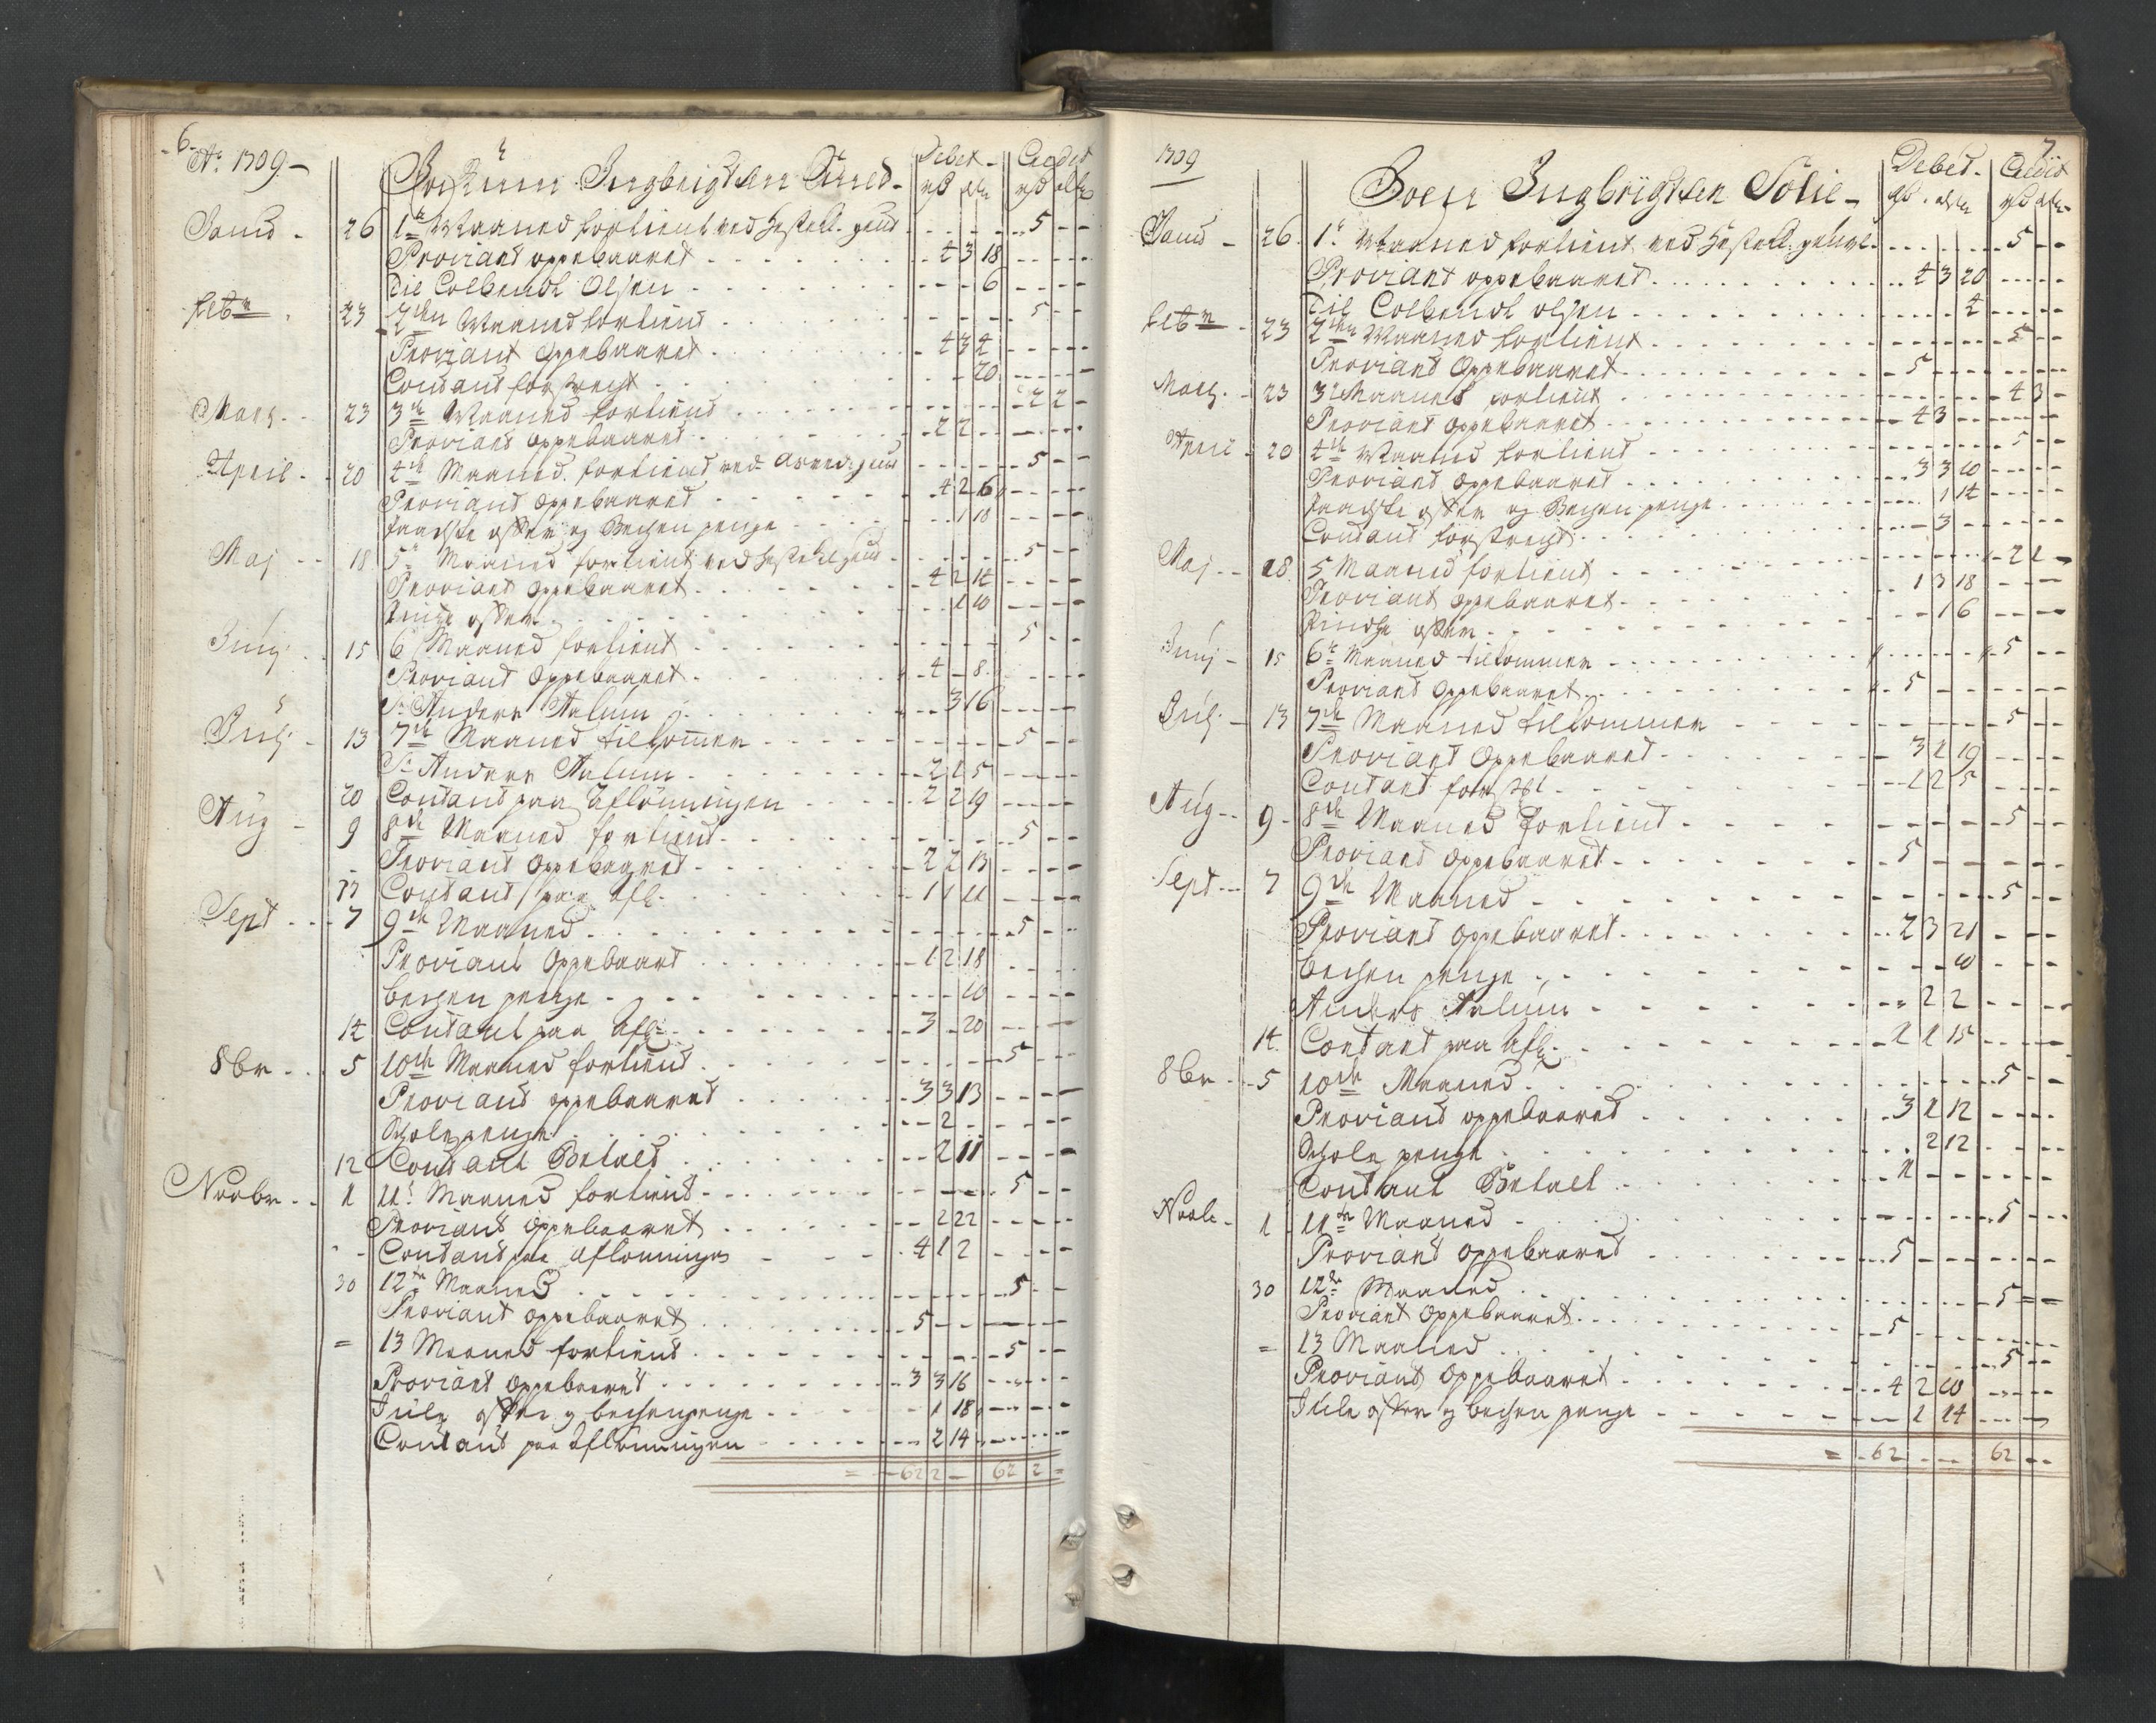 6. Ao. 1709 -
Debet - Credit
Ingbrigtsen
rd ort rd ort
Janu - 26 1te Maaned fortient ved - - 5 - -
Proviant oppebaaret - 4 3 18 - -
Til Colbenst Olsen - - - 6 - -
Febr. 23 2den Maaned fortiend - - 5 - -
Proviant Oppebaaret - 4 3 4 - -
Contant forstrægt - - 20 - -
Mart. 23 3de Maaned fortiend - - 2 2 -
Proviant oppebaaret - 2 2 - -
April - 20 4de Maaned fortiend ved - - 5 - -
Proviant oppebaaret - 4 2 16 - -
Faaste osten og Bergen penge - - 1 18 - -
Maj - 18 5te Maaned fortient ved - - 5 - -
Proviant oppebaaret - 4 2 14 - -
osten - - 1 10 - -
Junj - 15 6te Maaned fortient - - 5 - -
Proviant Oppebaaret - 4 - 8 - -
Sr Anders Aalum - - 3 16 - -
Julj - 13 7de Maaned tilkommen - - 5 - -
Sr Anders Aalum - 2 1 5 - -
20 Contant paa Aflønningen - 2 2 19 - -
Aug - 9 8de Maaned fortient - - 5 - -
Proviant Oppebaaret - 2 2 13 - -
Contant paa Afl. - 1 1 11 - -
Sept - 7 9de Maaned - - 5 - -
Proviant Oppebaaret - 1 2 18 - -
bergen penge - - - 10 - -
14 Contant paa Afl: - 3 - 20 - -
8br - 5 10de Maaned fortient - - 5 - -
Proviant oppebaaret - 3 3 13 - -
Schole penge - - 2 - - -
12 Contant Betalt - - 2 11 - -
Novbr - 1 11te Maaned fortient - - 5 - -
Proviant oppebaaret - - 2 22 - -
Contant paa Aflønningen - 4 1 2 - -
30 12te Maaned - - 5 - -
Proviant oppebaaret - 5 - - - -
= 13 Maaned fortient - - 5 - -
Proviant Oppebaaret - 3 3 16 - -
Jule osten og bergenpenge - - 1 18 - -
Contant paa Aflønningen - - 2 14 - -
= 62 2 - 62 2 =
1709
7
Debet - Credit
Ingbrigtsen Solie -
rd ort rd ort
Janu - 26 1te Maaned fortient ved - - 5 - -
Proviant oppebaaret - 4 3 20 - -
Til Colbenst olsen - - - 4 - -
Febr - 23 2den Maaned fortient - - 5 - -
Proviant Oppebaaret - 5 - - - -
Mart. - 23 3de Maaned fortient - - 4 3 -
Proviant oppebaaret - 4 3 - - -
April - 20 4de Maaned fortient - - 5 - -
Proviant Oppebaaret - 3 3 10 - -
Faaste osten og Bergen penge - - 1 14 - -
Contant forstrægt - - 3 - - -
Maj - 18 5 Maaned fortient - - 2 1 -
Proviant oppebaaret - 1 3 18 - -
osten - - 1 6 - -
Junj - 15 6te Maaned tilkommen - - 5 - -
Proviant Oppebaaret - 5 - - - -
Julj - 13 7de Maaned tilkommen - - 5 - -
Proviant Oppebaaret - 3 1 19 - -
Contant forstrt - 1 2 5 - -
Aug - 9 8de Maaned fortient - - 5 - -
Proviant oppebaaret - 5 - - - -
Sept - 7 9de Maaned - - 5 - -
Proviant oppebaaret - 2 3 21 - -
bergen penge - - - 10 - -
Anders Aalum - - 2 2 - -
14 Contant paa Afl: - 1 1 15 - -
8br - 5 10de Maaned - - 5 - -
Proviant oppebaaret - 3 1 12 - -
Schole penge - - 2 12 - -
Contant Betalt - 1 - - - -
Novb - 1 11te Maaned - - 5 - -
Proviant oppebaaret - 5 - - - -
30 12te Maaned - - 5 - -
Proviant Oppebaaret - 5 - - - -
= 13 Maaned - - 5 - -
Proviant Oppebaaret - 4 2 10 - -
Jule osten og bergen penge - - 1 14 - -
= 62 - - 62 - -